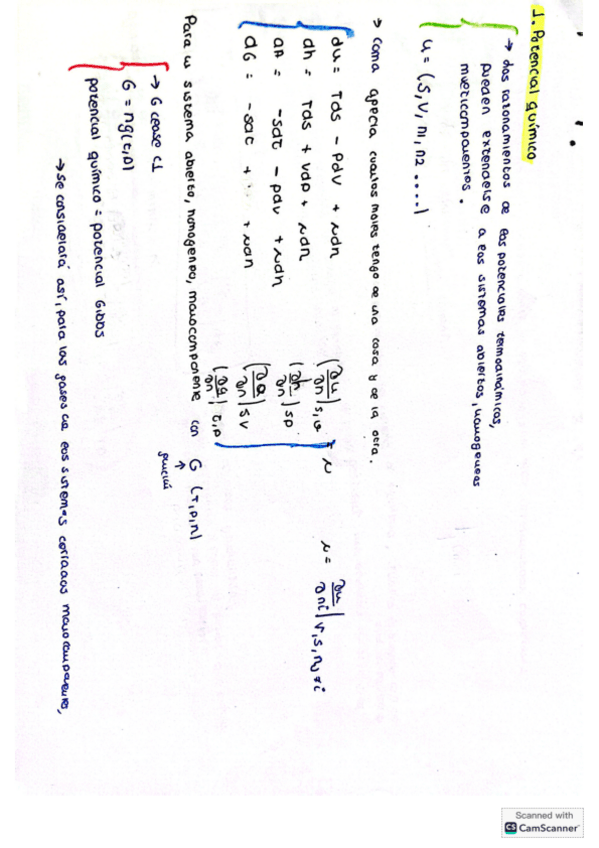 1. Potencial químico
→ Los razonamientos de los potenciales termodinámicos,
pueden extenderse a los sistemas abiertos, homogéneos
multicomponentes.
U = (S, V, n1, n2 ....)
→ Como afecta cuantos moles tengo de una cosa y de la otra.
du = Tds - Pdv + μdn
dh = Tds + Vdp + μdn
dA = -sdt - pdv + μdn
dG = -sdt + + μdn
(∂u/∂n) s,v
(∂h/∂n) sp
(∂a/∂n) s v
(∂g/∂n) t,p
= μ
μ = ∂u/∂ni) v,s,nj≠i
Para un sistema abierto, homogeneo, monocomponente con G (T,p,n)
↑
función
→ G cease
G = ng(t,p)
potencial químico = potencial Gibbs
→ se considerará así, para los gases en los sistemas cerrados monocomponentes,
Scanned with
CS CamScanner